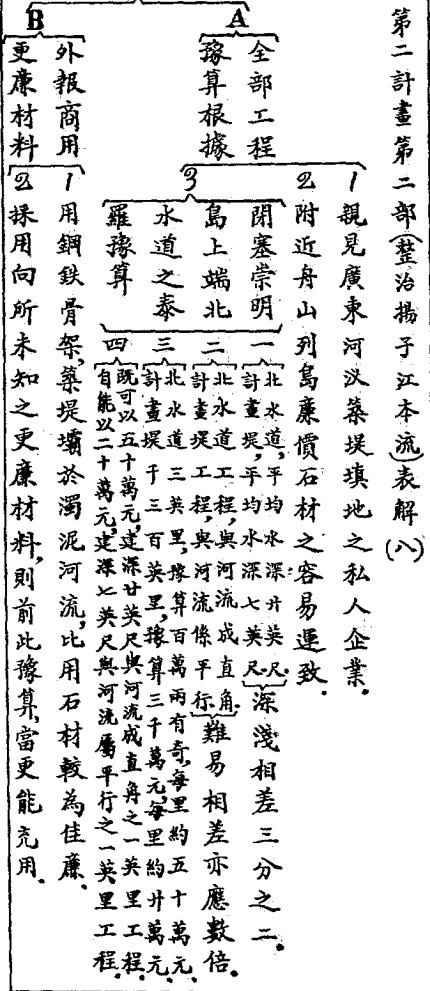 第二計畫第二部(整治揚子江本流)表解(八)
A
全部工程
豫算根據
1 親見廣東河汊築堤填地之私人企業.
2 附近舟山列島廉價石材之容易運致.
3
閉塞崇明
島上端北
水道之泰
羅豫算
一
北水道,平均水深廿英尺.
計畫堤,平均水深七英尺.
深淺相差三分之二.
二
北水道工程,與河流成直角.
計畫堤工程,與河流係平行.
難易相差亦應數倍.
三
北水道三英里,豫算百萬兩有奇,每里約五十萬元.
計畫堤千三百英里,豫算三千萬元,每里約廿萬元.
四
既可以五十萬元,建深廿英尺與河流成直角之一英里工程.
自能以二十萬元,建深七英尺與河流屬平行之一英里工程.
B
外報商用
更廉材料
1 用鋼鉄骨架,築堤壩於濁泥河流,比用石材較為佳廉.
2 採用向所未知之更廉材料,則前此豫算,當更能充用.